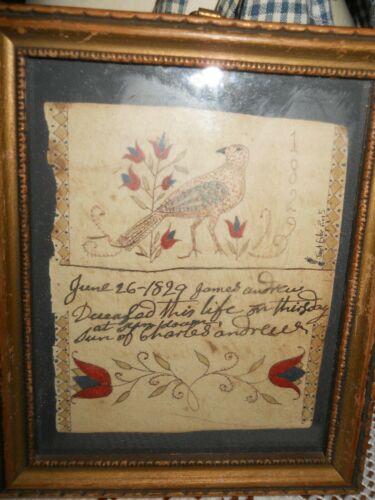 1829
June 26-1829 James andrew
Deceased this life on thirsday
at sun down,
Sun of Charles andrews